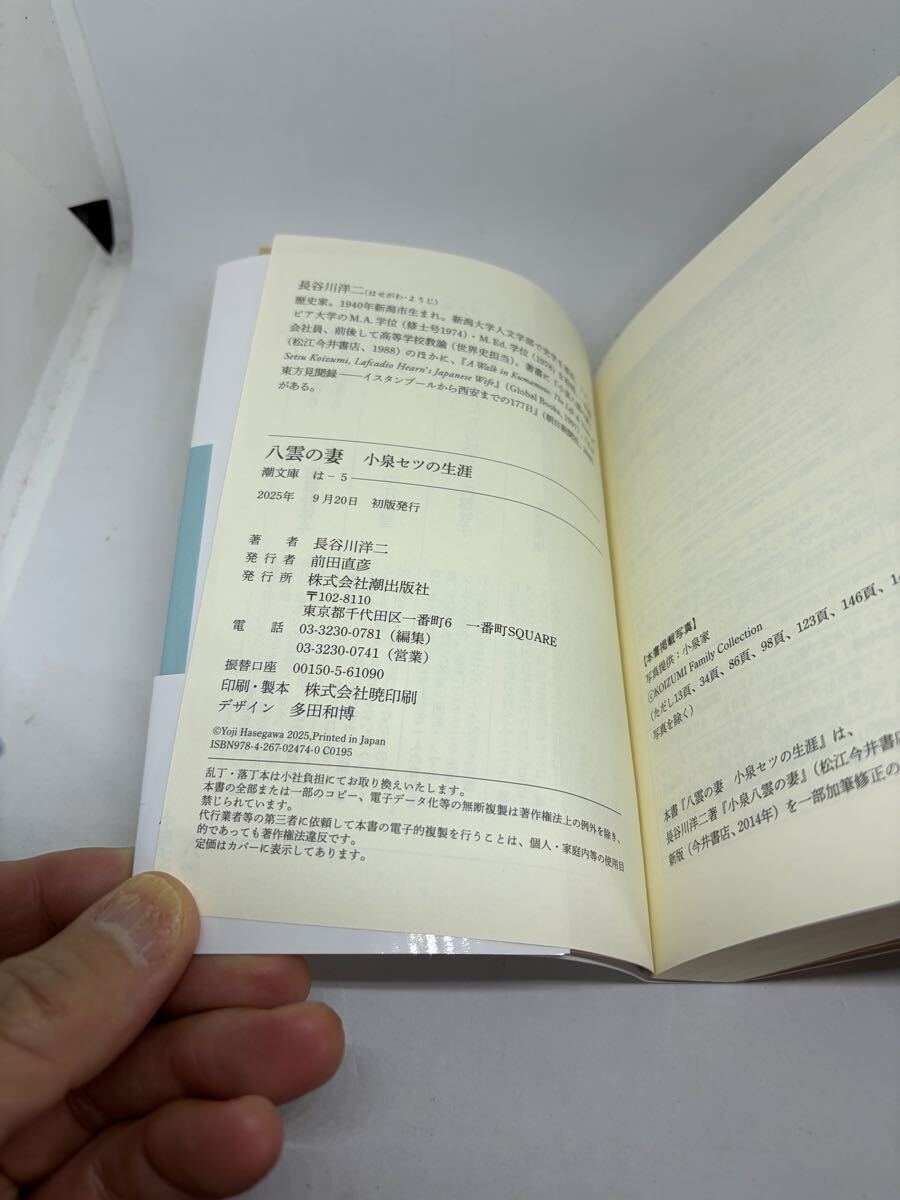 長谷川洋二(はせがわ・ようじ)
歴史家。1940年新潟市生まれ。新潟大学人文学部で史学を
ビア大学のM.A.学位(修士号1974)・M.Ed.学位(1978)を
会社員、前後して高等学校教諭(世界史担当)。著書に『小泉八雲の妻』
(松江今井書店、1988)のほかに、『A Walk in Kumamoto: The Life &
Setsu Koizumi, Lafcadio Hearn's Japanese Wife』(Global Books, 1997)
東方見聞録——イスタンブールから西安までの177日』(朝日新聞社
がある。
八雲の妻 小泉セツの生涯
潮文庫 は-5
2025年 9月20日 初版発行
著 者 長谷川洋二
発行者 前田直彦
発行所 株式会社潮出版社
〒102-8110
東京都千代田区一番町6 一番町SQUARE
電 話 03-3230-0781(編集)
03-3230-0741(営業)
振替口座 00150-5-61090
印刷・製本 株式会社暁印刷
デザイン 多田和博
©Yoji Hasegawa 2025,Printed in Japan
ISBN978-4-267-02474-0 C0195
乱丁・落丁本は小社負担にてお取り換えいたします。
本書の全部または一部のコピー、電子データ化等の無断複製は著作権法上の例外を除き、
禁じられています。
代行業者等の第三者に依頼して本書の電子的複製を行うことは、個人・家庭内等の使用目
的であっても著作権法違反です。
定価はカバーに表示してあります。
【本書掲載写真】
写真提供:小泉家
©KOIZUMI Family Collection
(ただし13頁、34頁、86頁、98頁、123頁、146頁、
写真を除く)
本書『八雲の妻 小泉セツの生涯』は、
長谷川洋二著『小泉八雲の妻』(松江今井書店
新版(今井書店、2014年)を一部加筆修正の